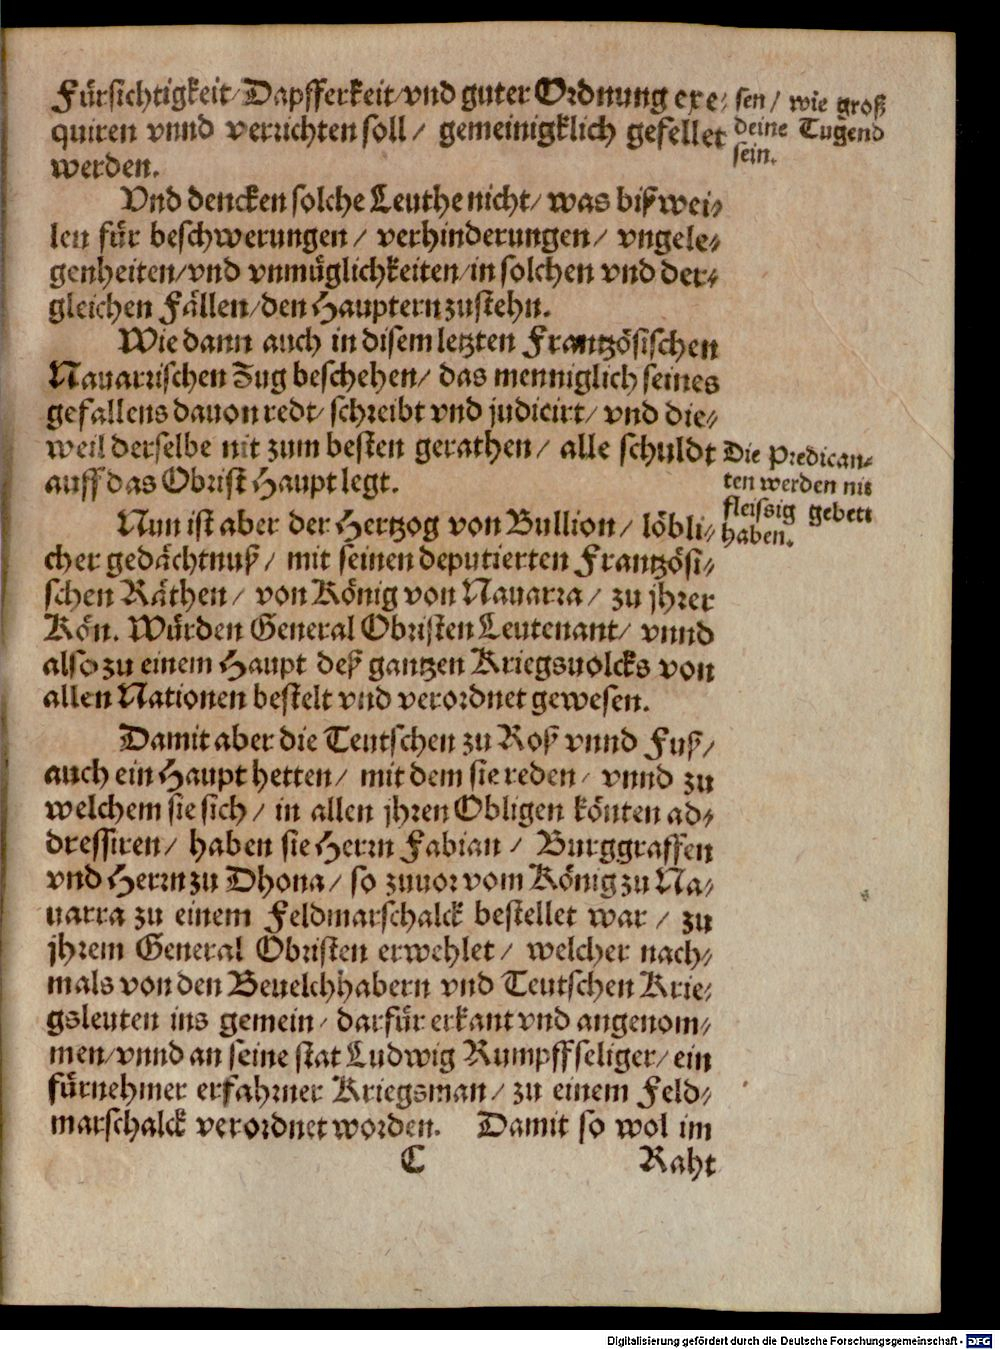 Fürsichtigkeit/ Dapfferkeit/ vnd guter Ordnung exe-
quiren vnnd verrichten soll/ gemeinigklich gefellet
werden.
Vnd dencken solche Leuthe nicht/ was bißwei-
len für beschwerungen/ verhinderungen/ vngele-
genheiten/ vnd vnmüglichkeiten/ in solchen vnd der-
gleichen Fällen/ den Hauptern zustehn.
Wie dann auch in disem letzten Frantzösischen
Nauarrischen Zug beschehen/ das menniglich seines
gefallens dauon redt/ schreibt vnd judicirt/ vnd die-
weil derselbe nit zum besten gerathen/ alle schuldt
auff das Obrist Haupt legt.
Nun ist aber der Hertzog von Bullion/ löbli-
cher gedächtnuß/ mit seinen deputierten Frantzösi-
schen Räthen/ von König von Nauarra/ zu jhrer
Kön. Würden General Obristen Leutenant/ vnnd
also zu einem Haupt deß gantzen Kriegsuolcks von
allen Nationen bestelt vnd verordnet gewesen.
Damit aber die Teutschen zu Roß vnnd Fuß/
auch ein Haupt hetten/ mit dem sie reden/ vnnd zu
welchem sie sich/ in allen jhren Obligen könten ad-
dressiren/ haben sie Herrn Fabian/ Burggraffen
vnd Herrn zu Dhona/ so zuuor vom König zu Na-
uarra zu einem Feldmarschalck bestellet war/ zu
jhrem General Obristen erwehlet/ welcher nach-
mals von den Beuelchhabern vnd Teutschen Krie-
gsleuten ins gemein/ darfür erkant vnd angenom-
men/ vnnd an seine stat Ludwig Rumpff seliger/ ein
fürnehmer erfahrner Kriegsman/ zu einem Feld-
marschalck verordnet worden. Damit so wol im
C Raht
sen/ wie groß
deine Tugend
sein.
Die Predican-
ten werden nit
fleissig gebett
haben.
Digitalisierung gefördert durch die Deutsche Forschungsgemeinschaft - DFG